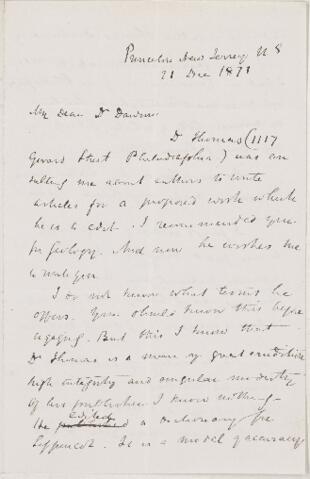 Princeton New Jersey U S
21 Dec 1871
My Dear Dr Dawson
Dr Thomas (1117
Girard Street Philadelphia) was con
sulting me about authors to write
articles for a proposed work which
he is to edit. I recommended you
for Geology. And now he wishes me
to write you
I do not know what terms he
offers. You should know this before
engaging. But this I know that
Dr Thomas is a man of great erudition
high integrity and singular modesty
Of his publisher I know nothing
He edited a dictionary for
Lippincot. It is a model of accuracy